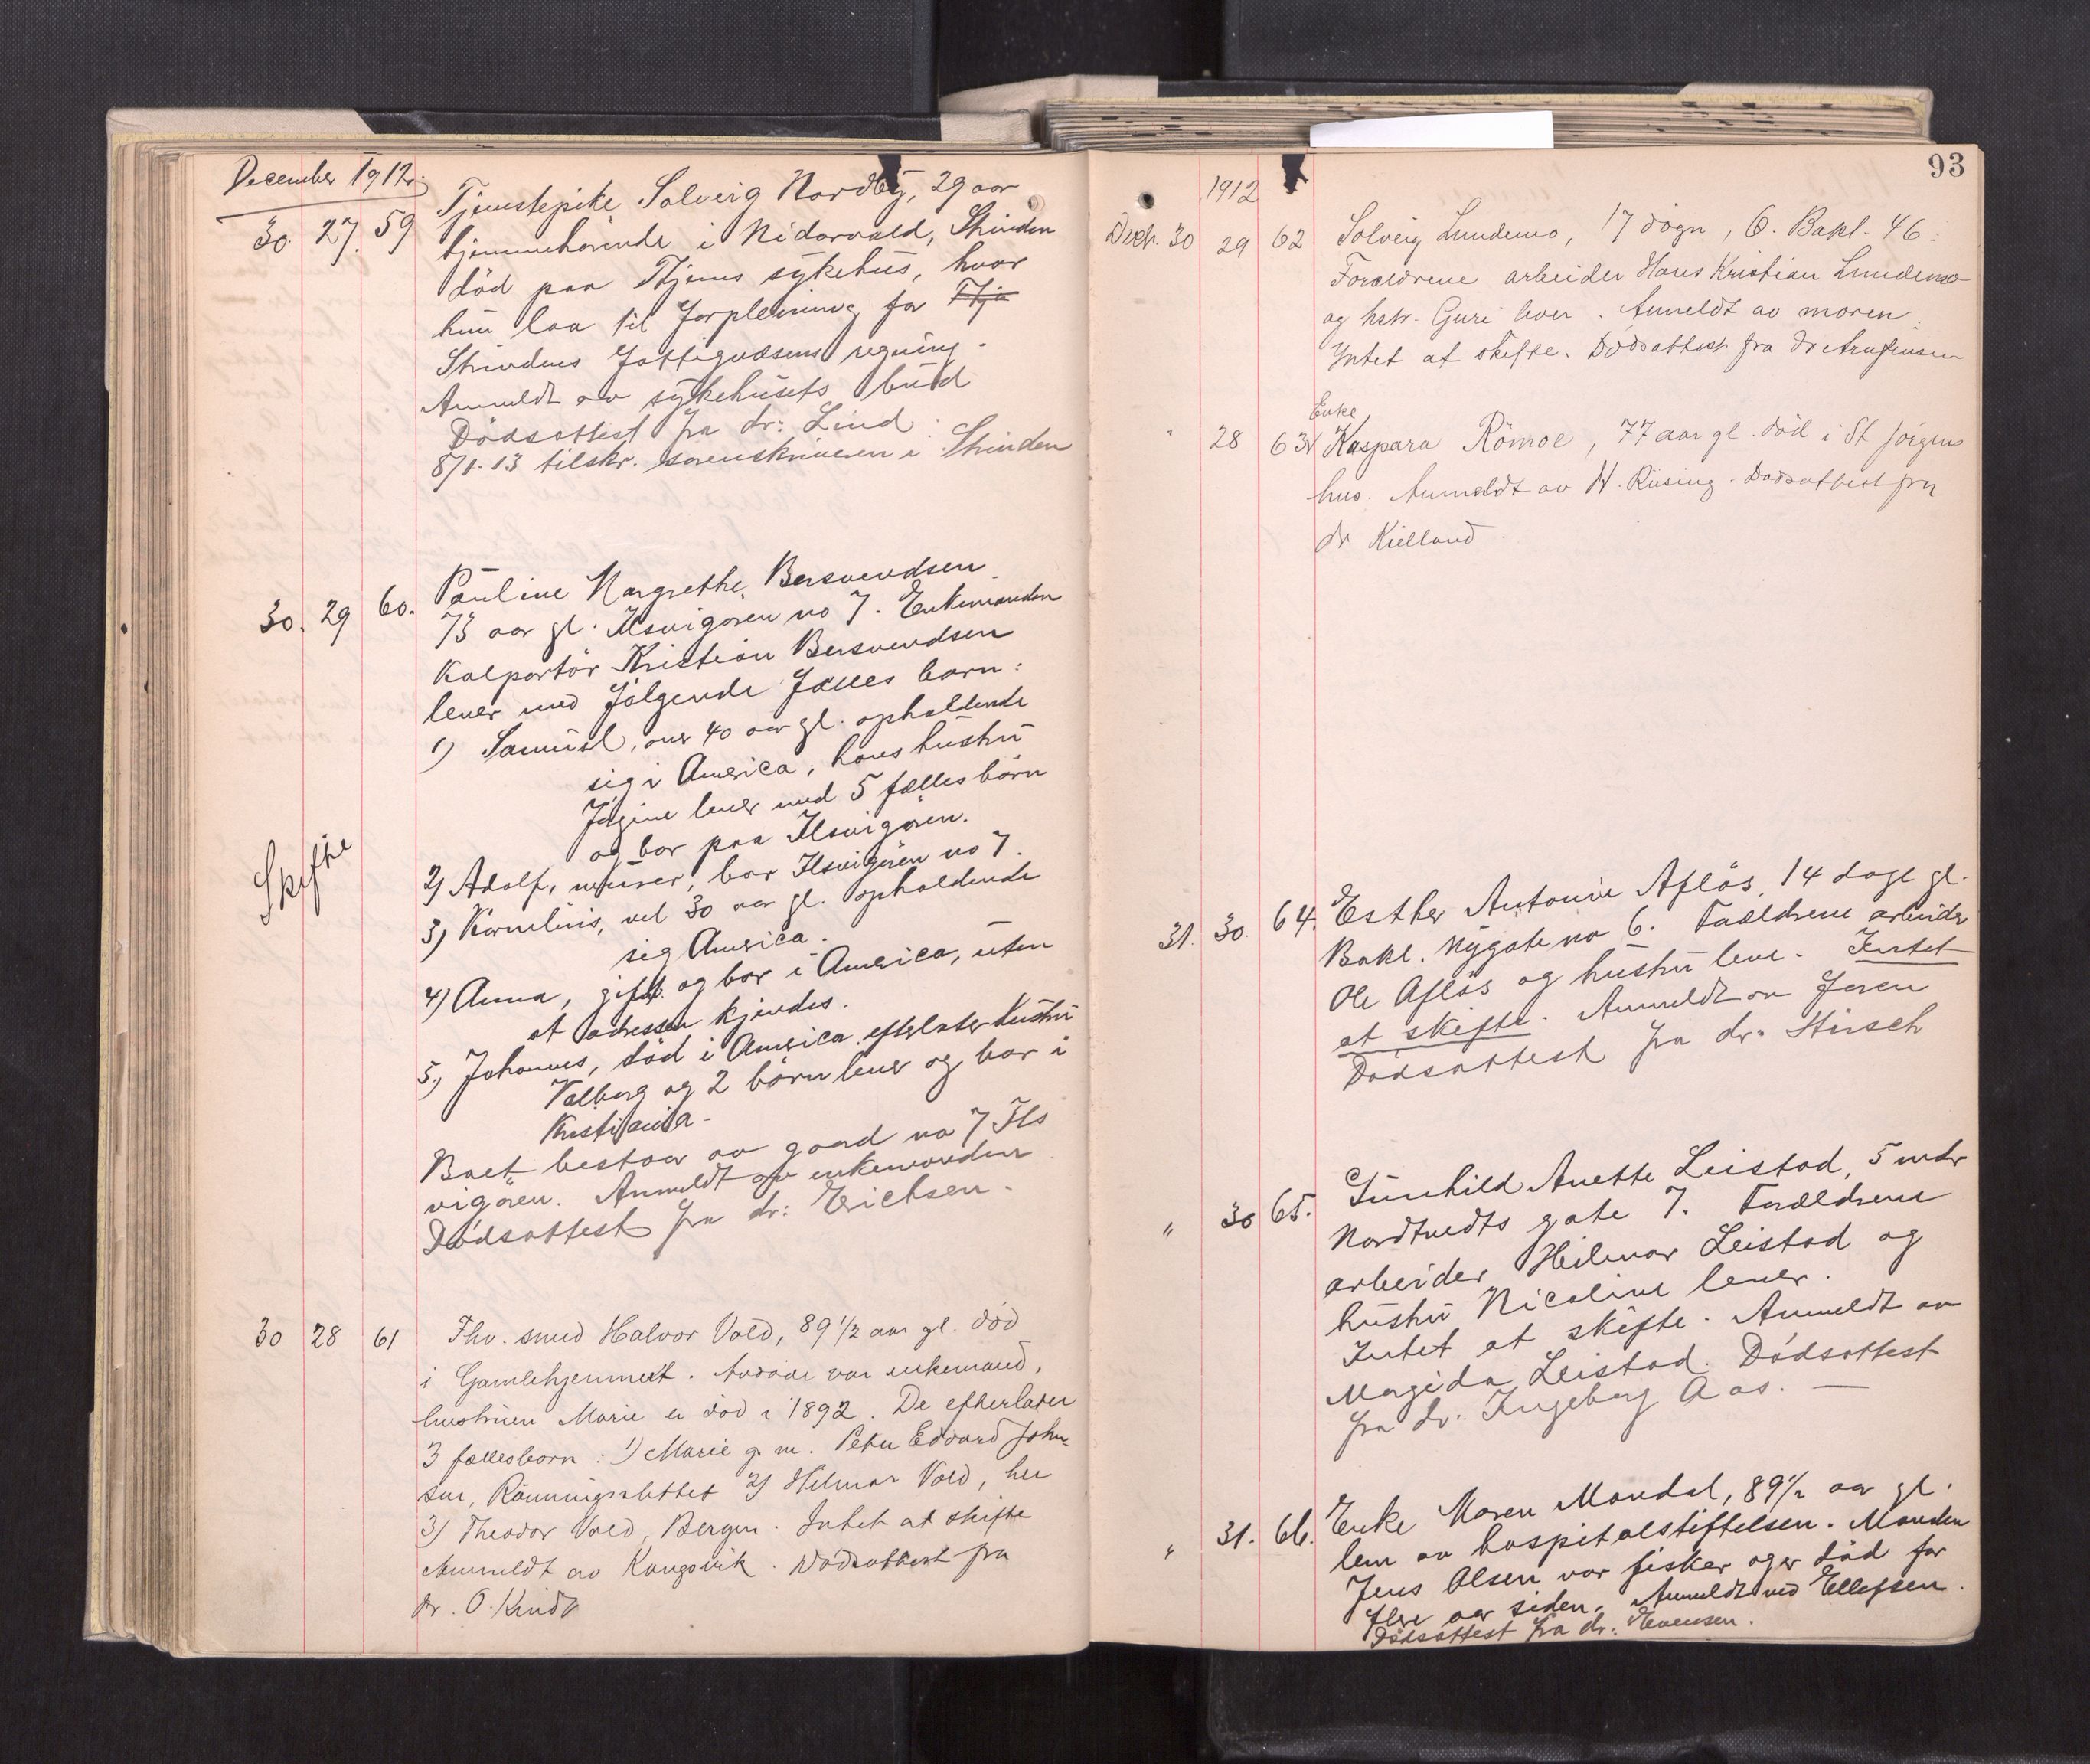 December 1912.
30. 27. 59 Tjenestepike Solveig Nordby, 29 aar
hjemmehørende i Nidarvold, Strinden
död paa Thjems sykehus, hvor
hun laa til forpleining for Thje
Strindens fattigvæsens regning.
Anmeldt av sykehusets bud
Dödsattest fra dr: Lind.
8/1-13 tilskr. sorenskriveren i Strinden
30. 29 60. Pauline Margrethe Bersvendsen
73 aar gl. Ilsvigøren no 7. Enkemanden
Kolportör Kristian Bersvendsen
lever med følgende fælles barn:
1) Samuel, over 40 aar gl. opholdende
sig i America, hans hustru
Jørgine lever med 5 fælles børn
og bor paa Ilsvigøren.
Skifte
2) Adolf, murer, bor Ilsvigøren no 7.
3) Kornelius, vel 30 aar gl. opholdende
sig America.
4) Anna, gift og bor i America, uten
at adressen kjendes.
5) Johannes, död i America efterlater hustru
Valborg og 2 børn lever og bor i
Kristiania-
Boet bestaar av gaard no 7 Ils
vigøren. Anmeldt av enkemanden
Dødsattest fra dr: Erichsen.
30 28 61 Fhv. smed Halvor Vold, 89 1/2 aar gl. död
i Gamlehjemmet. Avdøde var enkemand,
hustruen Marie er död i 1892. De efterlater
3 fællesbarn: 1) Marie g. m. Peter Edvard John-
sen, Rønningsletten 2) Hilmar Vold, her
3) Theodor Vold, Bergen. Intet at skifte
Anmeldt av Kongsvik. Dödsattest fra
dr. O. Kindt
93
1912
Decbr. 30 29 62 Solveig Lundemo, 17 døgn, Ö. Bakl. 46.
Forældrene arbeider Hans Kristian Lundemo
og hstr. Guri lever. Anmeldt av moren.
Intet at skifte. Dødsattest fra dr
" 28 63 Enke
Kaspara Römoe, 77 aar gl. död i St Jørgens
hus. Anmeldt av H. Riising. Dødsattest fra
dr Kielland.
31. 30. 64. Esther Antonie Afløs, 14 dage gl.
Bakl. Nygate no 6. Forældrene arbeider
Ole Afløs og hustru leve. Intet
at skifte. Anmeldt av faren
Dødsattest fra dr. Hirsch
" 30 65. Gunhild Anette Leistad, 5 mdr
Nordtvedts gate 7. Forældrene
arbeider Heilmar Leistad og
hustru Nicoline lever.
Intet at skifte. Anmeldt av
Magida Leistad. Dødsattest
fra dr. Ingeborg Aas. —
" 31. 66. Enke Maren Mandal, 89 1/2 aar gl.
lem av hospitalstiftelsen. Manden
Jens Olsen var fisker og er död for
flere aar siden. Anmeldt ved Ellefsen.
Dødsattest fra dr. Evensen.